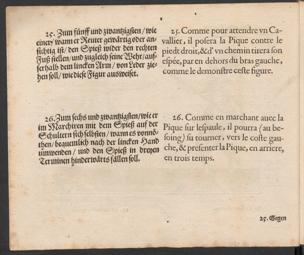 25. Zum fünff und zwantzigsten / wie
einer / wann er Reuter gewärtig oder an-
sichtig ist / den Spieß wider den rechten
Fuß stellen / und zugleich seine Wehr / auß-
serhalb dem lincken Arm / von Leder zie-
hen soll / wie diese Figur ausweiset.
26. Zum sechs und zwantzigsten / wie er
im Marchiren mit dem Spieß auf der
Schultern sich selbsten / wann es vonnö-
then / bequemlich nach der lincken Hand
umwenden / und den Spieß in dreyen
Terminen hinderwärts fällen soll.
25. Comme pour attendre vn Ca-
vallier, il posera la Pique contre le
pied droit, & d' vn chemin tirera son
espée, par en dehors du bras gauche,
comme le demonstre ceste figure.
26. Comme en marchant auec la
Pique sur lespaule, il pourra (au be-
soing) su tourner, vers le coste gau-
che, & presenter la Pique, en arriere,
en trois temps.
25. Gegen